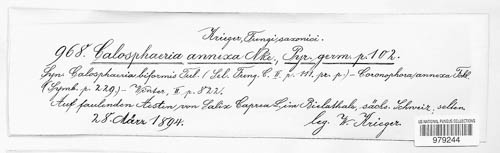 Krieger, Fungi saxonici.
968. Calosphaeria annexa Nke., Pyr. germ. p. 102.
Syn. Calosphaeria biformis Tul. (Sel. Fung. C. II. p. 111, pr. p.) — Coronophora annexa Fckl.
(Symb. p. 229) — Winter, II. p. 822.
Auf faulenden Aesten von Salix Caprea L. im Bielathale, sächs. Schweiz, selten
28. März 1894. leg. W. Krieger.
US NATIONAL FUNGUS COLLECTIONS
979244